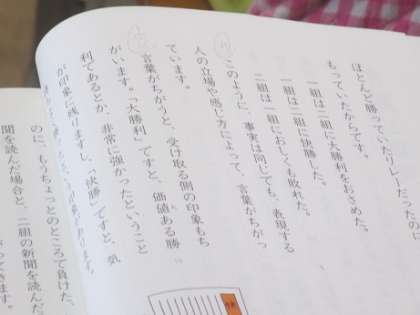 ほとんど勝っていたリレーだったのに
もっていたからです。
一組は二組に大勝利をおさめた。
一組は二組に快勝した。
二組は一組におしくも敗れた。
このように、事実は同じでも、表現する
人の立場や感じ方によって、言葉がちがっ
ています。
言葉がちがうと、受け取る側の印象もち
がいます。「大勝利」ですと、価値ある勝
利であるとか、非常に強かったということ
が印象に残りますし、「快勝」ですと、気
のに、もうちょっとのところで負けた、
聞を読んだ場合と、二組の新聞を読んだ
ってきます。